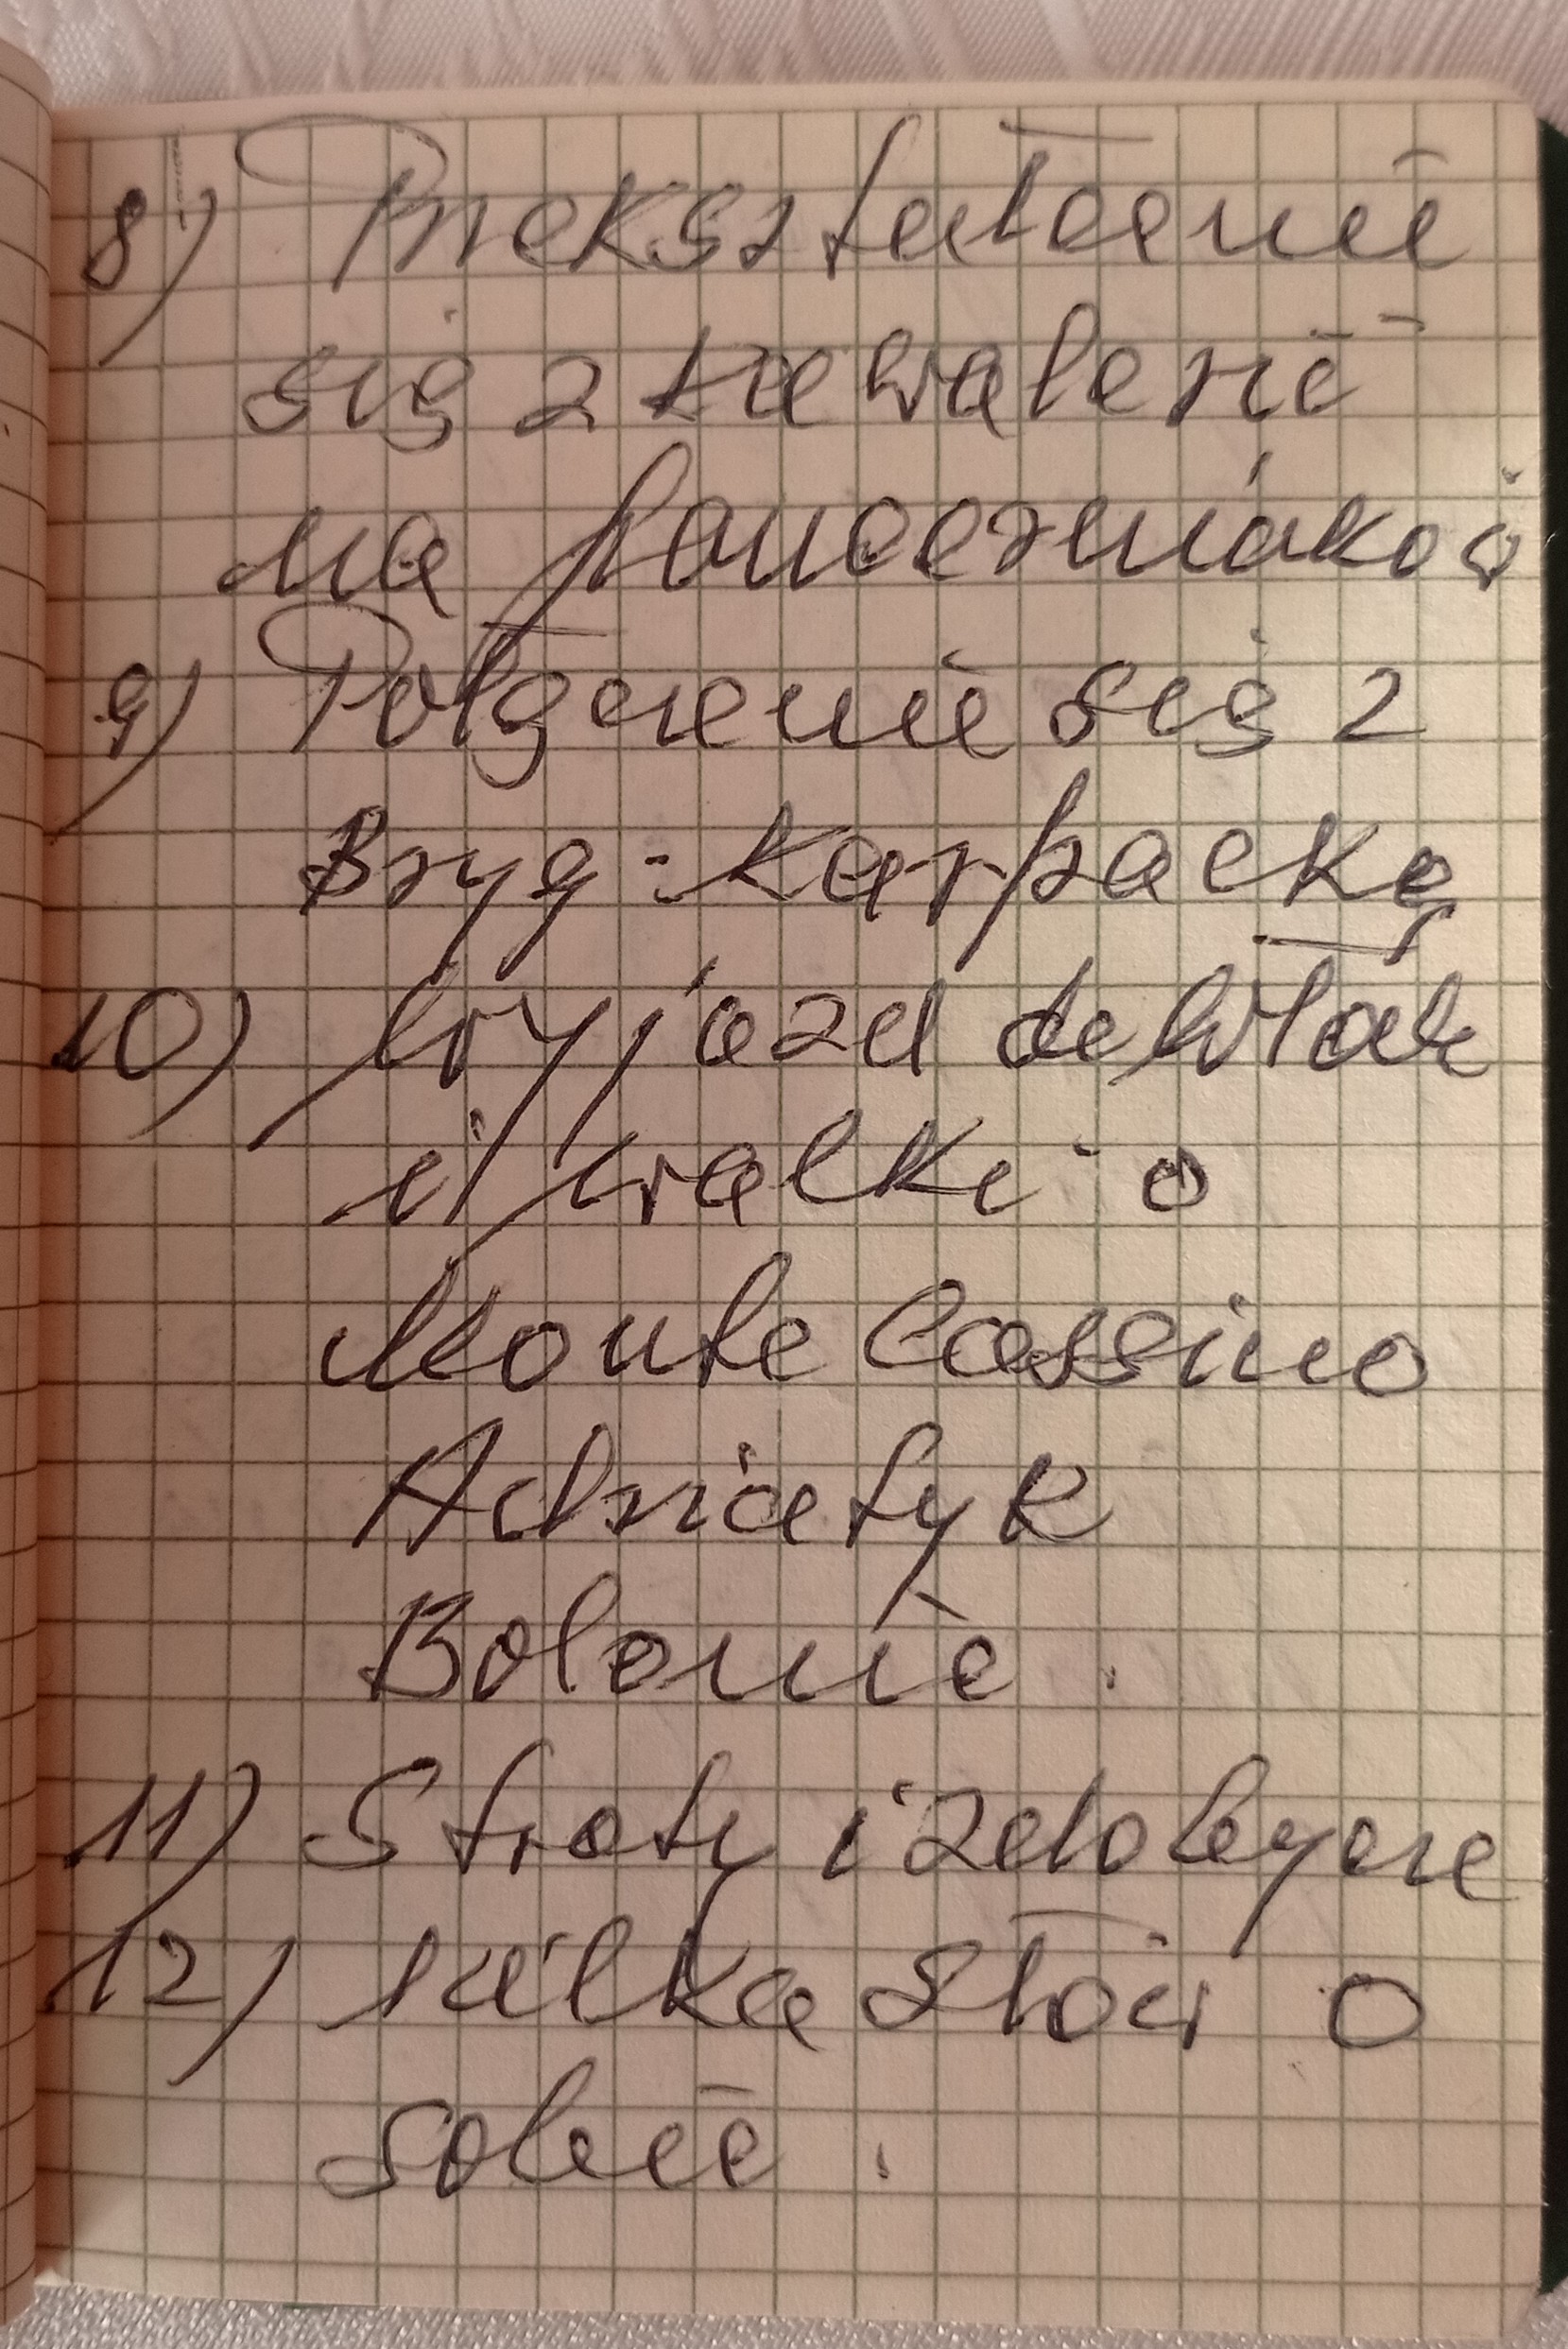 8) Przekształcenie
się z kawalerii
na pancerniaków
9) Połączenie się z
Bryg. Karpacką
10) Wyjazd do Włoch
i walki o
Monte Cassino
Adriatyk
Bolonie.
11) Straty i zdobycze
12) kilka słów o
sobie.